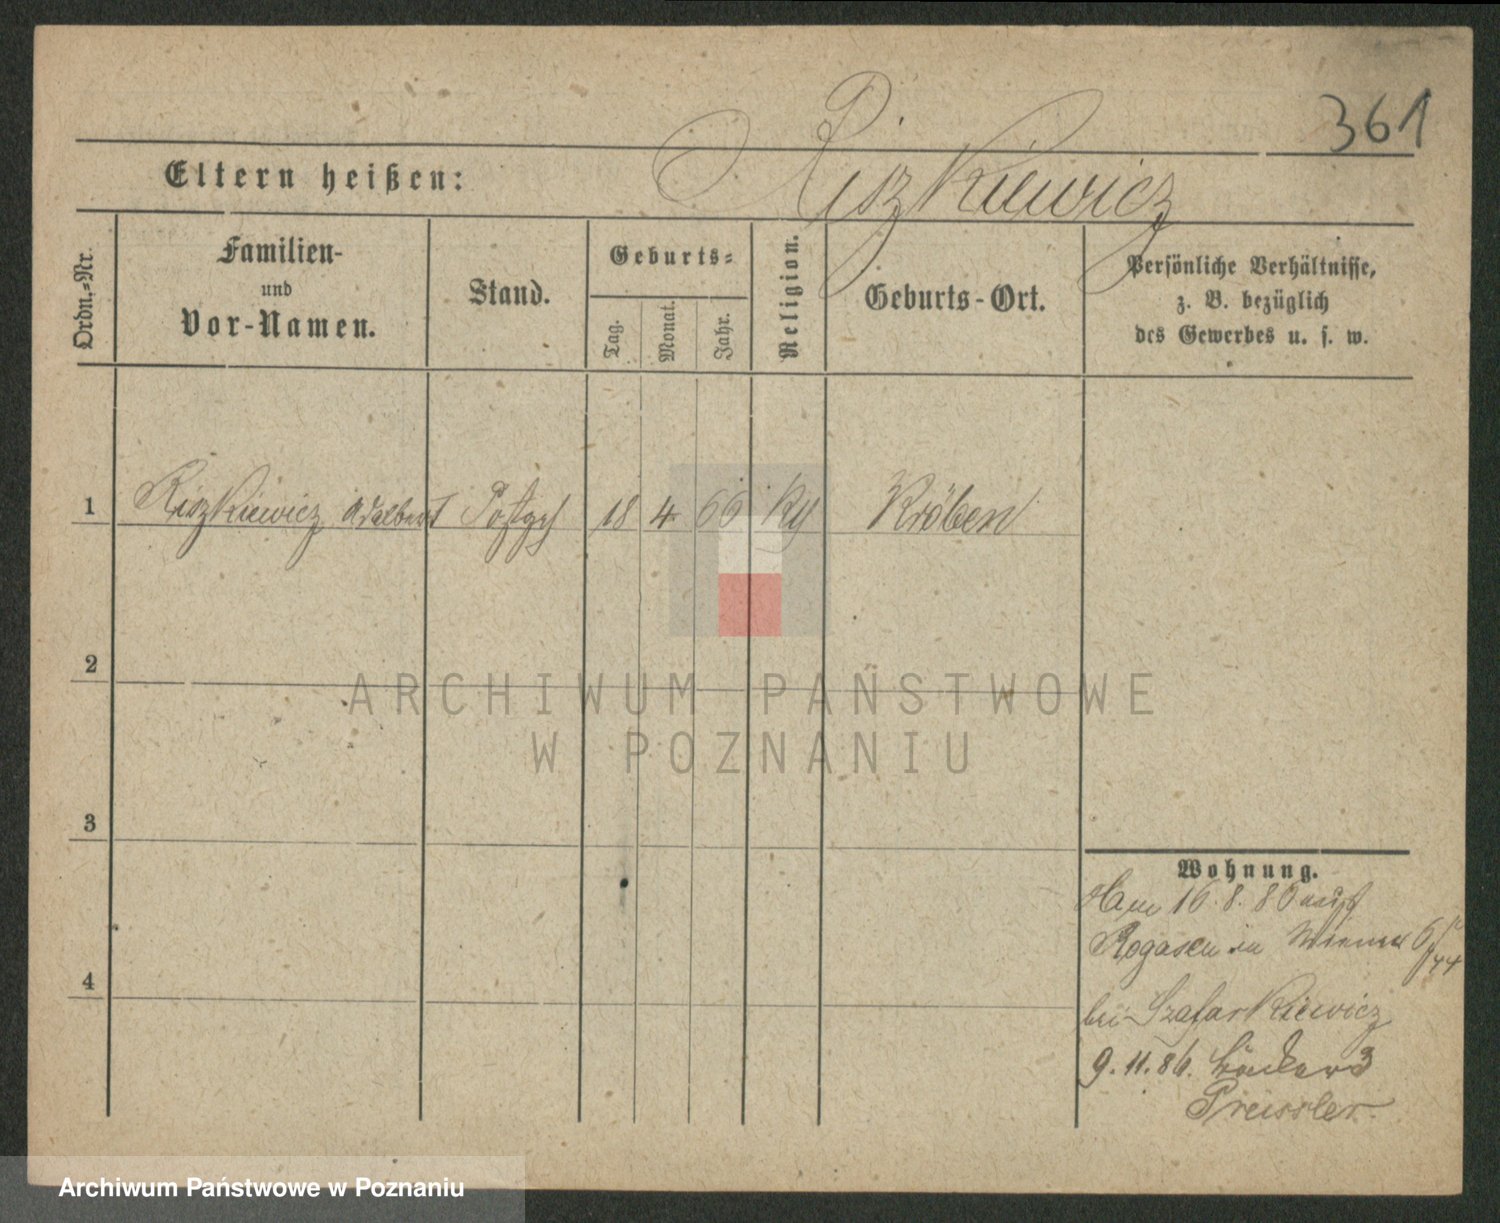 361
Eltern heißen: Riszkiewicz
Ordn.-Nr.
Familien-
und
Vor-Namen.
Stand.
Geburts-
Tag.
Monat.
Jahr.
Religion.
Geburts-Ort.
Persönliche Verhältnisse,
z. B. bezüglich
des Gewerbes u. s. w.
1 Riszkiewicz Adalbert 18 4 66 Kröben
2
3
4
ARCHIWUM PAŃSTWOWE
W POZNANIU
Wohnung.
16. 8. 86
Rogasen in
bei Szafarkiewicz
9. 11. 86.
Preissler
Archiwum Państwowe w Poznaniu